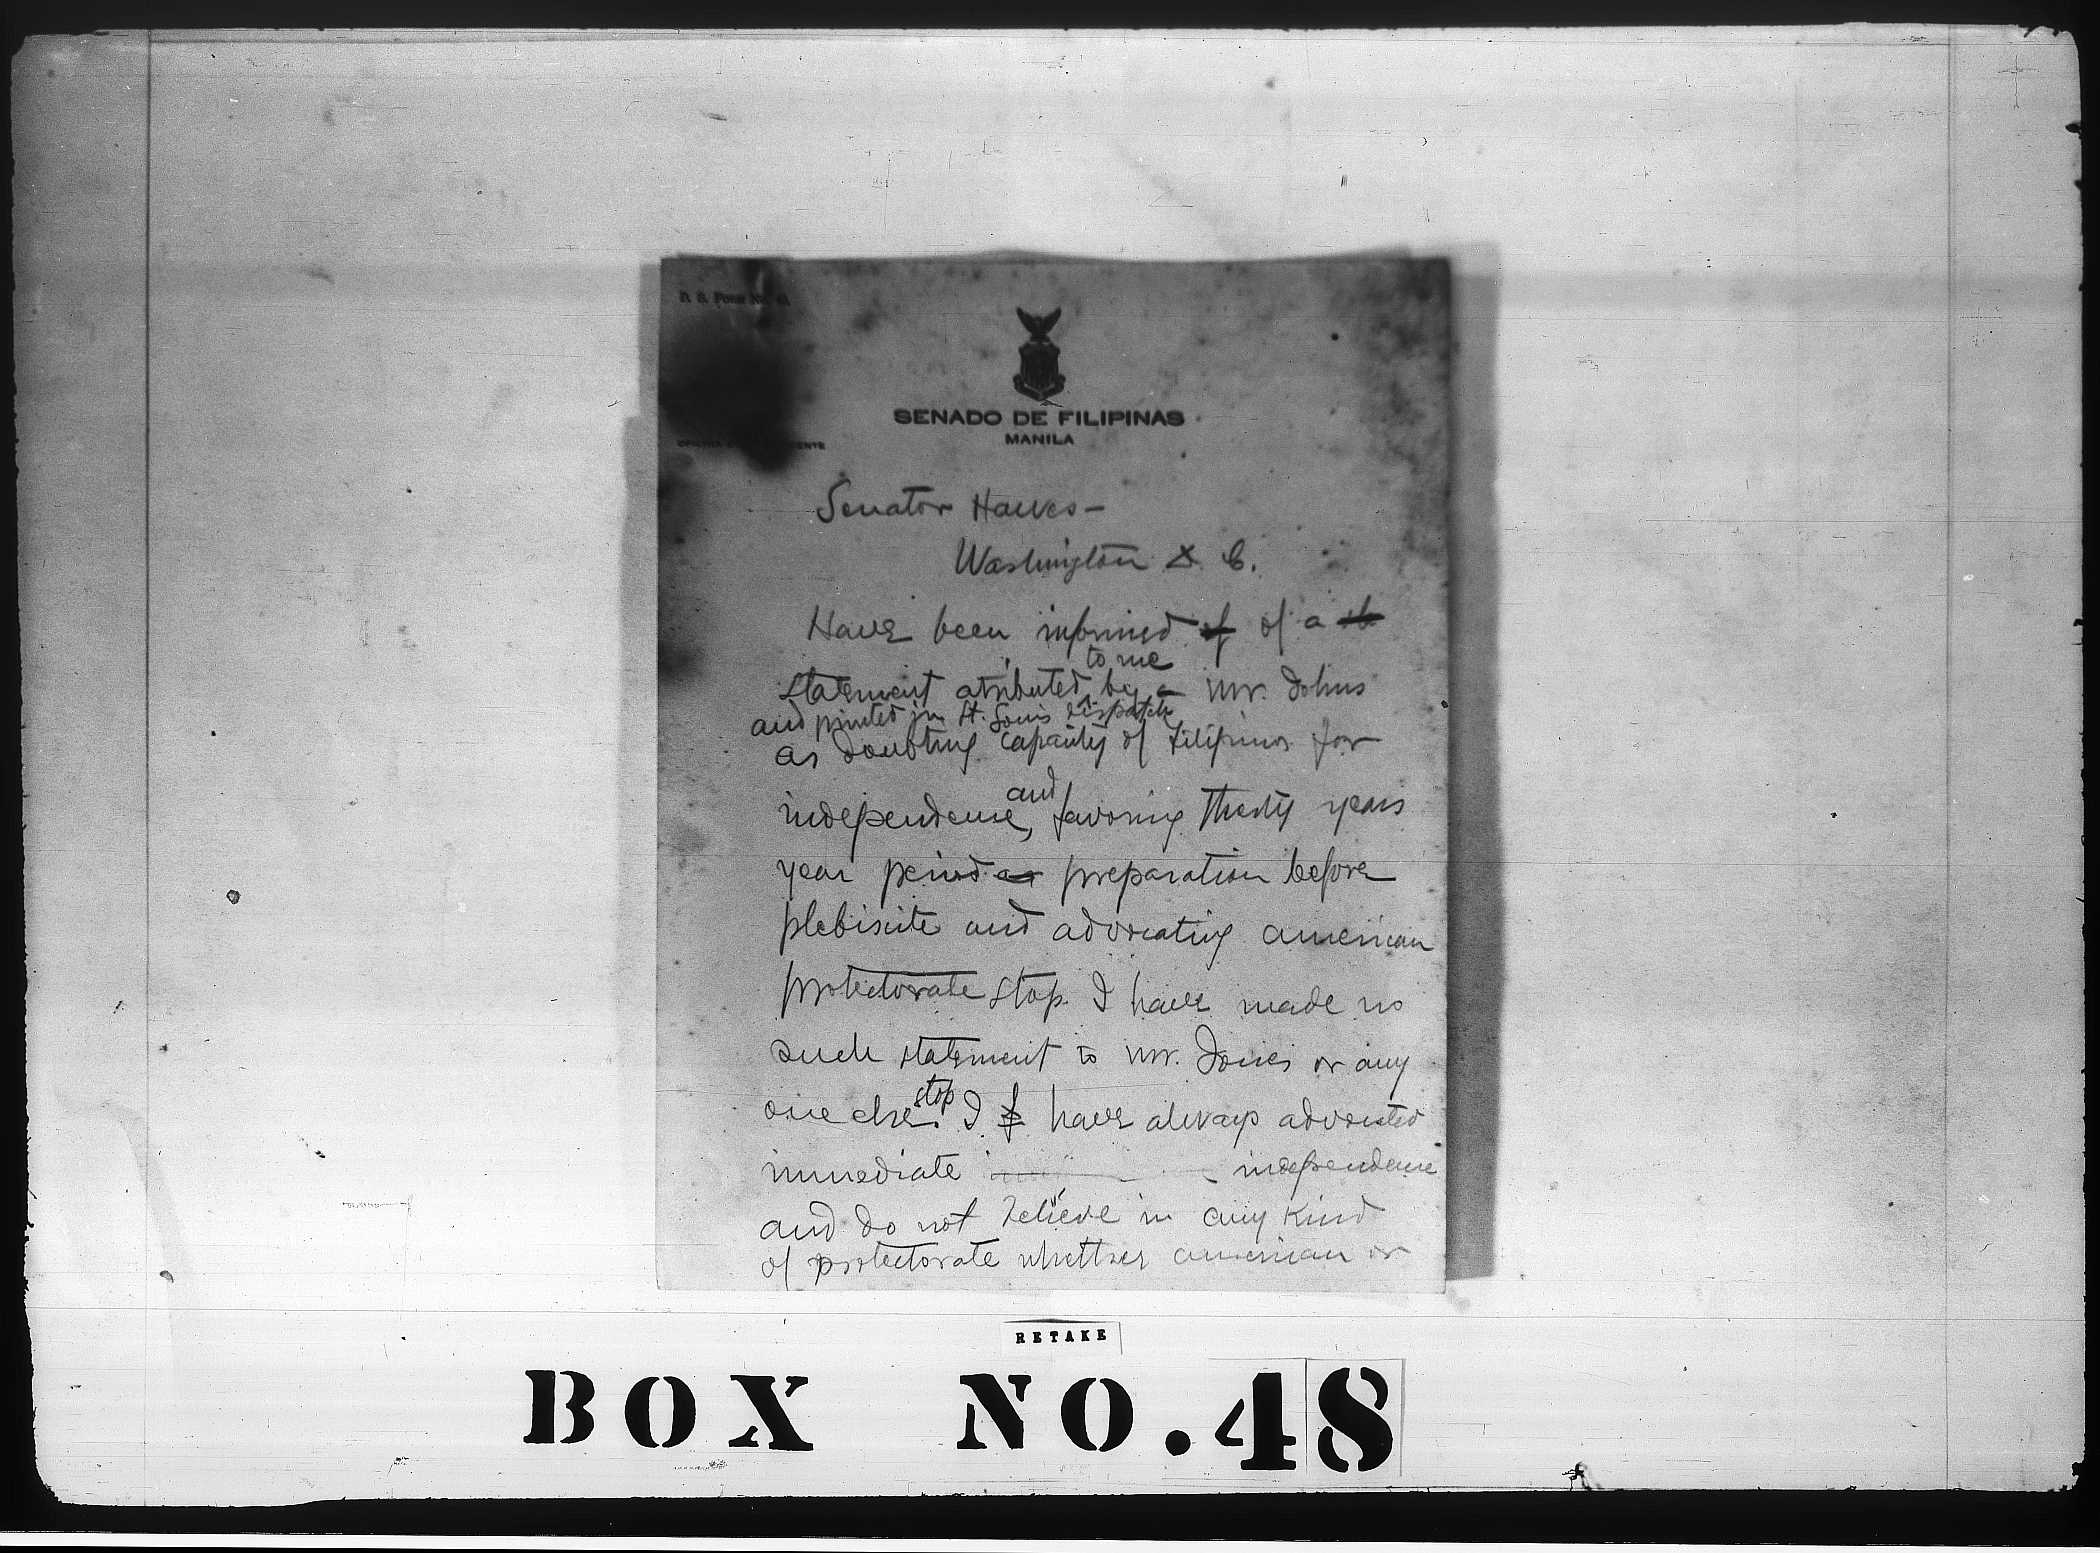 P. S. Form No.
SENADO DE FILIPINAS
MANILA
Senator Hawes-
Washington D. C.
Have been informed of of a
to me
statement atributed by a Mr. Johns
and printed in St. Louis Dispatch
as doubting capacity of Filipinos for
and
independence, favoring thirty years
year period as preparation before
plebisite and advocating american
protectorate stop I have made no
such statement to Mr. Jones or any
stop
one else. I have always advocated
immediate independence
and do not believe in any kind
of protectorate whether american or
RETAKE
BOX NO.48